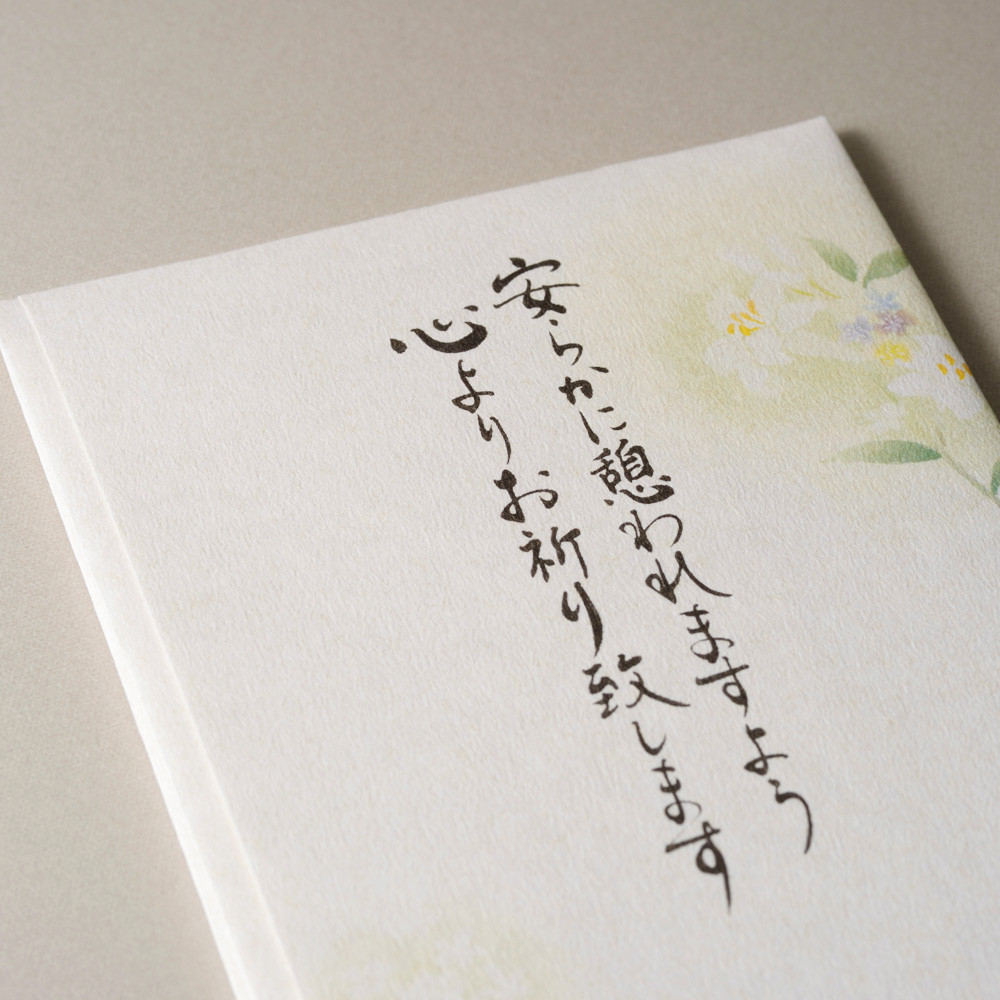 安らかに憩われますよう
心よりお祈り致します